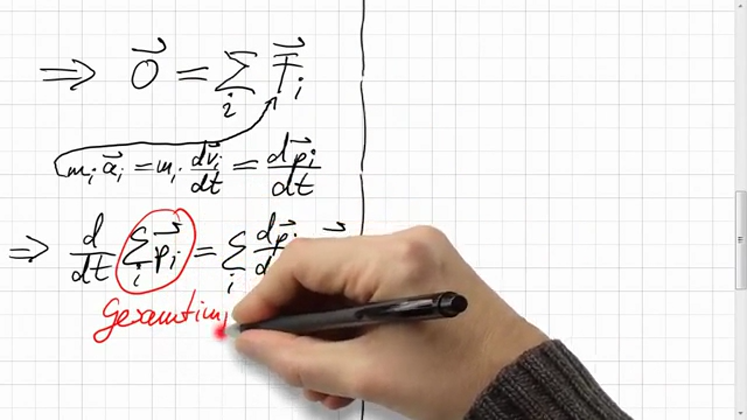 ⇒ 0⃗ = Σ_i F⃗_i
m_i a⃗_i = m_i dv⃗_i/dt = dp⃗_i/dt
⇒ d/dt Σ_i p⃗_i = Σ_i dp⃗_i
Gesamtim